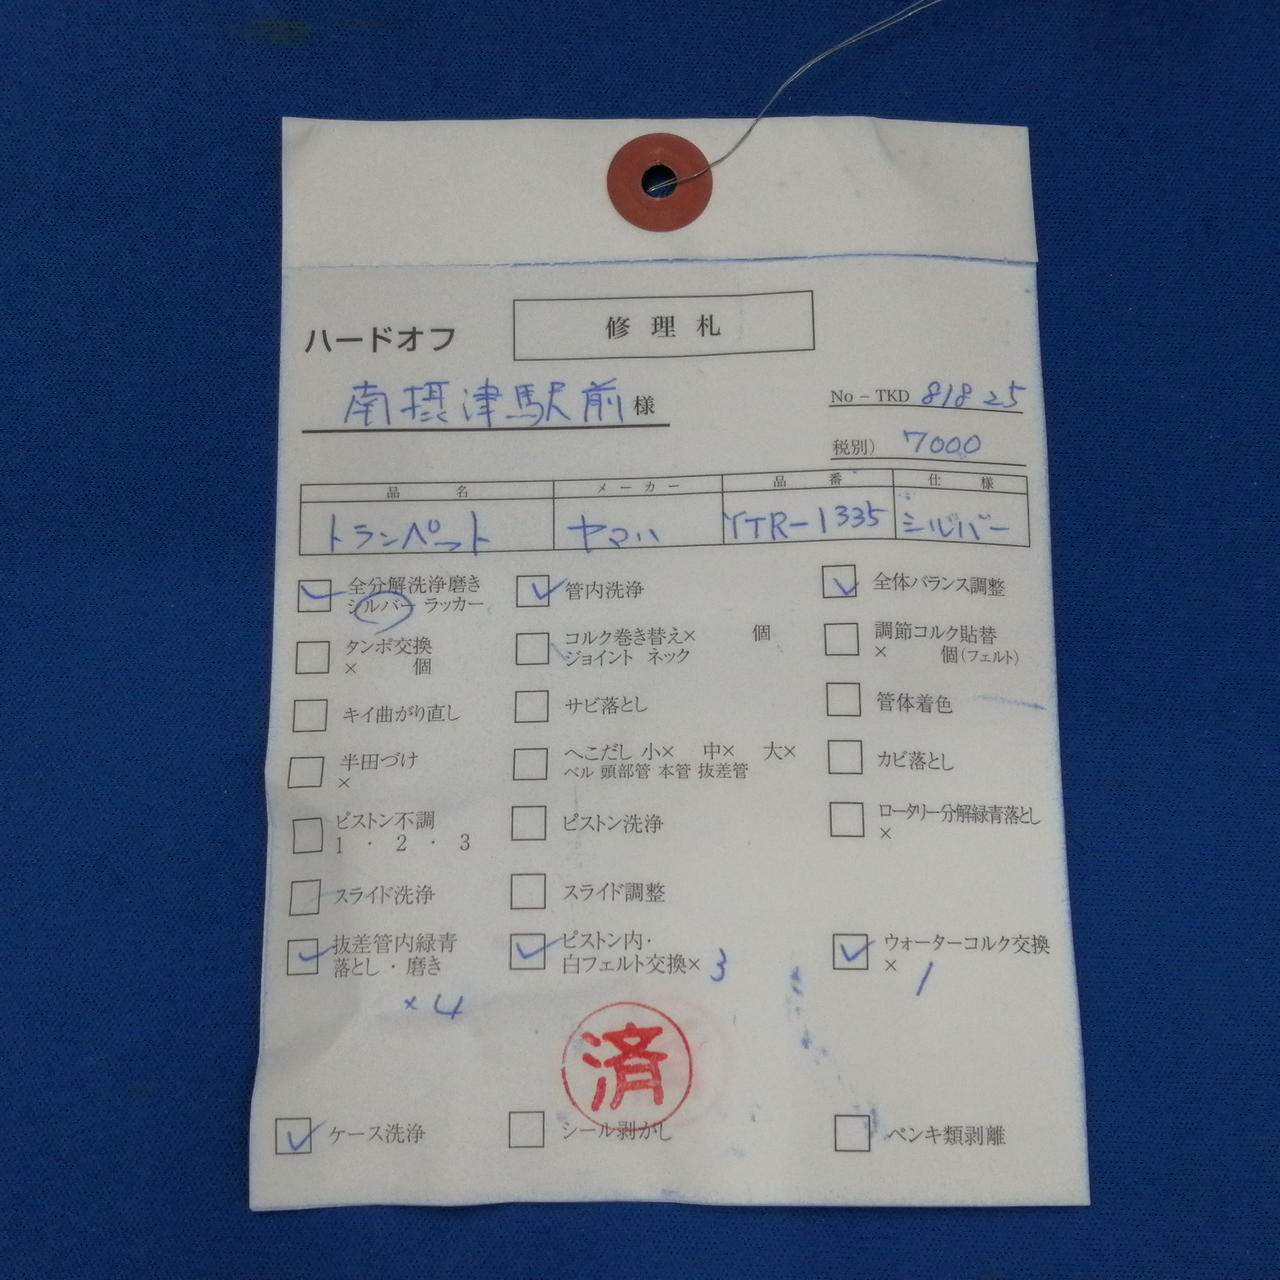 ハードオフ
修理札
南摂津駅前様
No－TKD 81825
税別) 7000
品名 メーカー 品番 仕様
トランペット ヤマハ YTR-1335 シルバー
全分解洗浄磨き
シルバー ラッカー
管内洗浄
全体バランス調整
タンポ交換
× 個
コルク巻き替え× 個
ジョイント ネック
調節コルク貼替
× 個(フェルト)
キイ曲がり直し
サビ落とし
管体着色
半田づけ
×
へこだし 小× 中× 大×
ベル 頭部管 本管 抜差管
カビ落とし
ピストン不調
1・2・3
ピストン洗浄
ロータリー分解緑青落とし
×
スライド洗浄
スライド調整
抜差管内緑青
落とし・磨き
×4
ピストン内・
白フェルト交換×3
ウォーターコルク交換
×1
済
ケース洗浄
シール剥がし
ペンキ類剥離